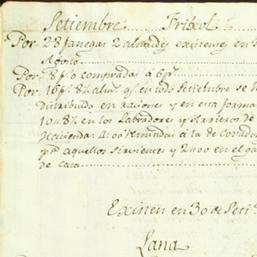 Setiembre Frixol
Por 28 fanegas 2 almudes existen. en 3
Agosto
Por 8 f.s compradas á 6 p.s
Por 16 f.s 8½ alm.s q.e en todo Setiembre se h
distribuido en raciones y en esta forma
10 " 8½ en los Labradores y Harrieros de
Haciendas 4 " 00 remitidas á la de
p.a aquellos sirvientes y 2 " 00 en el ga
de casa
Existen en 30 de Set.e
Lana